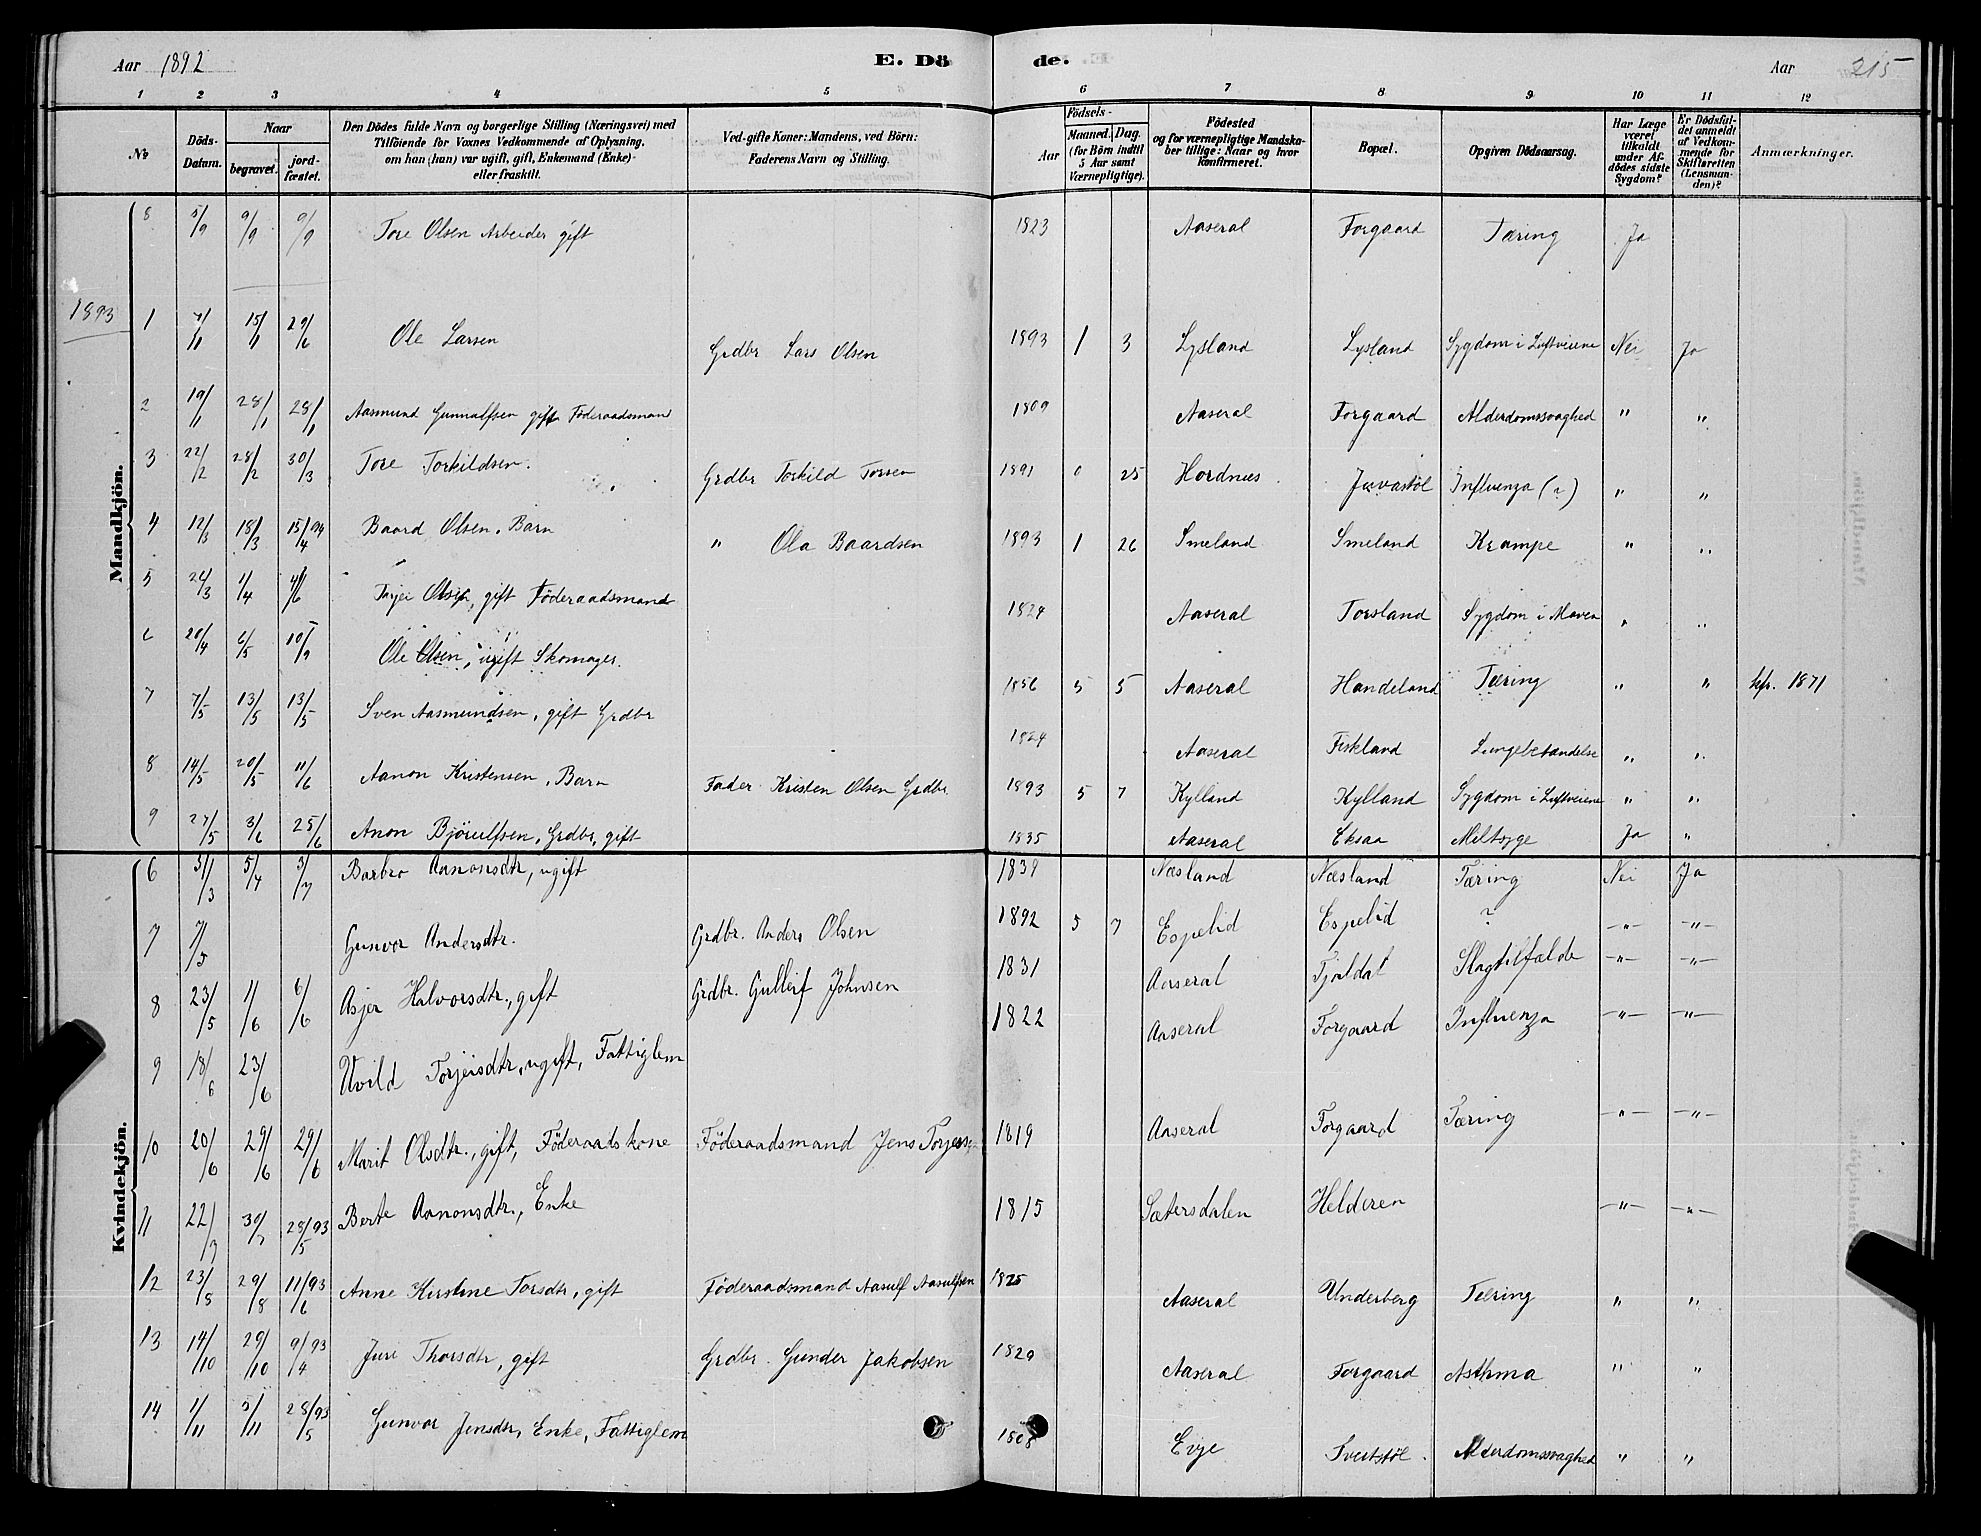 Aar 1892 E. Dö de. Aar 215
1 2 3 4 5 6 7 8 9 10 11 12
No Döds-Datum. Naar begravet. jordfæstet. Den Dödes fulde Navn og borgerlige Stilling (Næringsvei) med Tilföiende for Voxnes Vedkommende af Oplysning, om han (hun) var ugift, gift, Enkemand (Enke) eller fraskilt. Ved gifte Koner: Mandens, ved Börn: Faderens Navn og Stilling. Födsels- Aar Maaned. Dag. (for Börn indtil 5 Aar samt Værnepligtige). Födested og for værnepligtige Mandskaber tillige: Naar og hvor konfirmeret. Bopæl. Opgiven Dödsaarsag. Har Læge været tilkaldt under Afdödes sidste Sygdom? Er Dödsfaldet anmeldt af Vedkommende for Skifteretten (Lensmanden)? Anmærkninger.
Mandkjön.
8 5/9 9/9 9/9 Tore Olsen Arbeider gift 1823 Aaseral Forgaard Tæring Ja
1893
1 7/1 15/1 29/6 Ole Larsen Grdbr Lars Olsen 1893 1 3 Lysland Lysland Sygdom i Luftveiene Nei Ja
2 19/1 28/1 28/1 Aasmund Gunnulfsen gift Föderaadsmand 1809 Aaseral Forgaard Alderdomssvaghed " "
3 22/2 28/2 30/3 Tore Torkildsen. Grdbr Torkild Torsen 1891 0 25 Hordnes Juvastøl Influenza (?) " "
4 12/3 18/3 15/4 94 Baard Olsen, Barn " Ola Baardsen 1893 1 26 Smeland Smeland Krampe " "
5 26/3 1/4 4/6 Tarjei Olsen, gift Föderaadsmand 1824 Aaseral Torsland Sygdom i Maven " "
6 20/4 6/5 10/9 Ole Olsen, ugift Skomager. 1856 5 5 Aaseral Handeland Tæring " " kfr. 1871
7 7/5 13/5 13/5 Sven Aasmundsen, gift Grdbr 1824 Aaseral Fiskland Lungebetændelse " "
8 14/5 20/5 11/6 Aanon Kristensen, Barn Fader Kristen Olsen Grdbr. 1893 5 7 Kylland Kylland Sygdom i Luftveiene " "
9 27/5 3/6 25/6 Anon Bjørulfsen, Grdbr, gift 1835 Aaseral Eksaa Miltsyge Ja "
Kvindekjön.
6 31/3 5/4 3/7 Barbro Aanonsdtr, ugift 1839 Næsland Næsland Tæring Nei Ja
7 7/5 Gunvor Andersdtr. Grdbr. Anders Olsen 1892 5 7 Espelid Espelid ? -"- -"-
8 23/5 1/6 6/6 Asjer Halvorsdtr., gift Grdbr. Gulleif Johnsen 1831 Aaseral Tjaldal Slagtilfælde -"- -"-
9 18/6 23/6 Torjeisdtr, ugift, Fattiglem 1822 Aaseral Forgaard Influenza -"- -"-
10 20/6 29/6 29/6 Marit Olsdtr., gift, Föderaadskone Föderaadsmand Jens Torjeisen 1819 Aaseral Forgaard Tæring -"- -"-
11 22/7 30/7 28/5 93 Berte Aanonsdtr, Enke 1815 Sætersdalen Helderen -"- -"-
12 23/8 29/8 11/6 93 Anne Kirstine Torsdtr, gift Föderaadsmand Aasulf Aasulfsen 1825 Aaseral Underberg Tæring " "
13 14/10 29/10 9/4 93 Juri Thorsdtr, gift Grdbr. Gunder Jakobsen 1829 Aaseral Forgaard Asthma " "
14 1/11 5/11 28/5 93 Gunvor Jensdtr, Enke, Fattiglem 1808 Evje Sveitstøl Alderdomssvaghed " "